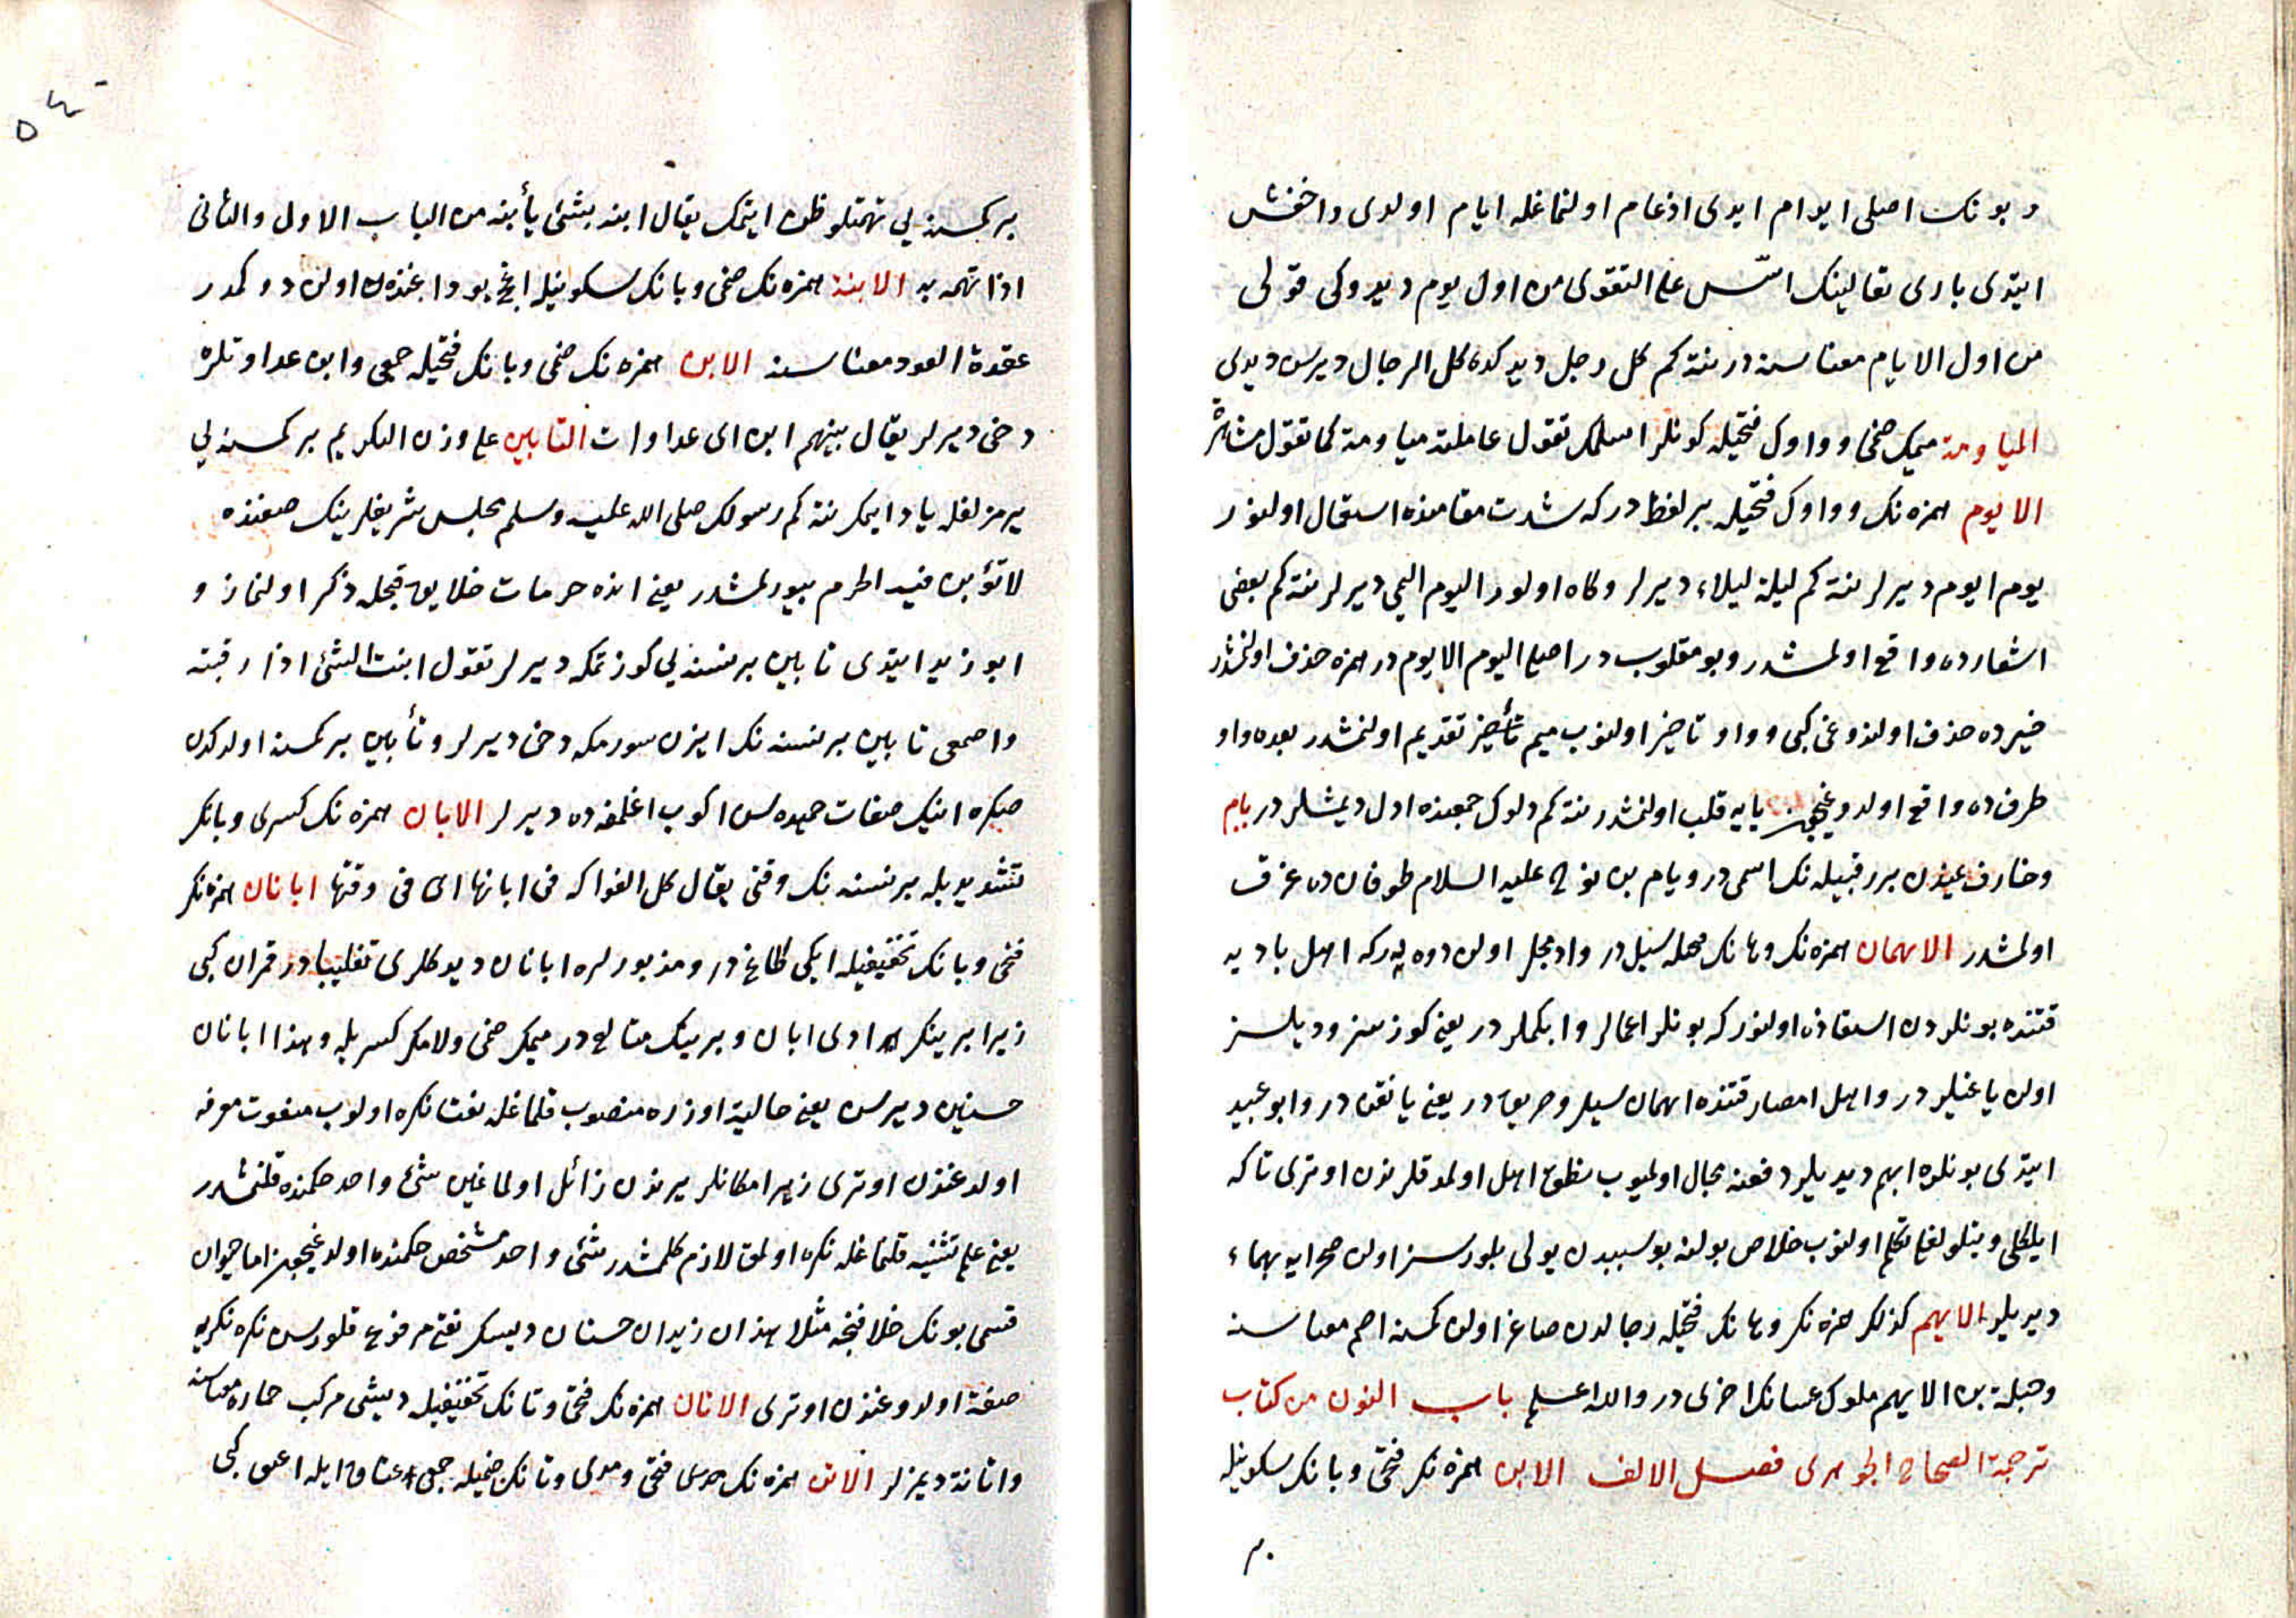 و بونك اصلى ايوام ايدى ادغام اولنماغله ايام اولدى واخفش
ايتدى بارى تعالينك اسّس على التقوى من اول يوم ديدوكى قولى
من اول الايام معناسنه در نته كم كل رجل ديدكده كل الرجال ديرسن ديدى
المياومة ميمك ضمى و واوك فتحيله كونلر اسلمك تقول عاملته مياومة كما تقول مشاهرة
الايوم همزه نك و واوك فتحيله بر لفظ در كه شدت مقامنده استعمال اولنور
يوم ايوم ديرلر نته كم ليلة ليلاء ديرلر وكاه اولور اليوم اليمى ديرلر نته كم بعض
اشعارده واقع اولمشدر وبو مقلوب در اصلى اليوم الايوم در همزه حذف اولنمشدر
خيرده حذف اولندوغى كبى و واو تأخير اولنوب ميم تقديم اولنمشدر بعده واو
طرف ده واقع اولدوغيچون يايه قلب اولنمشدر نته كم دلوك جمعنده ادل ديمشلردر يام
وخارف يمنده بر قبيله نك اسمى در ويام بن نوح عليه السلام طوفان ده غرق
اولمشدر الايهمان همزه نك وهانك فتحيله سيل در وادمجل اولن دوه يه در كه اهل باديه
قتنده بونلردن استعاذه اولنور كه بونلر اعمالر وابكملر در يعنى كوزسز وديلسز
اولن ياغيلر در واهل امصار قتنده ايهمان سيلر وحريق در يعنى يانغن در وابو عبيد
ايتدى بونلره ايهم ديديلر دفعنه مجال اولميوب نطق اهل اولمدقلرندن اوترى تا كه
ايلكلى وتيلو لغله تكلم اولنوب خلاص بولنه بو سببدن يولى بلورسز اولن صحرايه يهماء
ديديلر الايهم كذلك همزه نك وهانك فتحيله رجالدن صاغر اولن كمسنه اصم معناسنه
وجبلة بن الايهم ملوك غسانك اخرى در والله اعلم باب النون من كتاب
ترجمة الصحاح الجوهرى فصل الالف الابن همزه نك فتحى وبانك سكونيله
بر كمسنه يى تهمتلو ظن ايتمك يقال ابنه بشئ يأبنه من الباب الاول والثانى
اذا تهمه به الابنة همزه نك ضمى وبانك سكونيله اغج بوداغنده اولن دوكمدر
عقدة العود معناسنه الابن همزه نك ضمى وبانك فتحيله جمعى وابن عداوتلره
دخى ديرلر يقال بينهم ابن اى عداوات التابين على وزن التكريم بر كمسنه يى
يرمزلغله ياد ايمك نته كم رسولك صلى الله عليه وسلم مجلس شريفلرينك صفتنده
لا تؤبن فيه الحرم بيورلمشدر يعنى انده حرمات خلايق قبحله ذكر اولنماز و
ابو زيد ايتدى تابين بر نسنه يى كوزتمكه ديرلر تقول ابنت الشئ اذا رقبته
واصمعى تابين بر نسنه نك ايزن سورمكه دخى ديرلر وتأبين بر كمسنه اولدكدن
صكره انيك صفات حميده سن اكوب اغلمغه ده ديرلر الابان همزه نك كسرى وبانك
تشديديله بر نسنه نك وقتى يقال كل الفواكه فى ابانها اى فى وقتها ابانان همزه نك
فتحى وبانك تخفيفيله ايكى طاغ در ومذبورلره ابانان ديدكلرى تغليبا در قمران كبى
زيرا برينك ادى ابان وبرينك متالع در ميمك ضمى ولامك كسريله وهذا ابانان
حسنين ديرسن يعنى حالية اوزره منصوب قلماغله نعتا نكره اولوب منعوت معرفه
اولدغندن اوترى زيرا مكانلر يرندن زائل اولماغين شئ واحد حكمنده قلنمشدر
يعنى علم تثنيه قلنماغله نكره اولمق لازم كلمشدر شئ واحد مشخص حكمنده اولدغيچون اما حيوان
قسمى بونك خلافنجه مثلا هذان زيدان حسنان ديسك نعتى مرفوع قلورسن نكره نكريه
صفة اولدوغندن اوترى الاتان همزه نك فتحى وتانك تخفيفيله ديشى مركب حماره معناسنه
واتانة ديمزلر الاتن همزه نك فتحى ومدى وتانك ضميله جمعى عناق ايله اعنق كبى